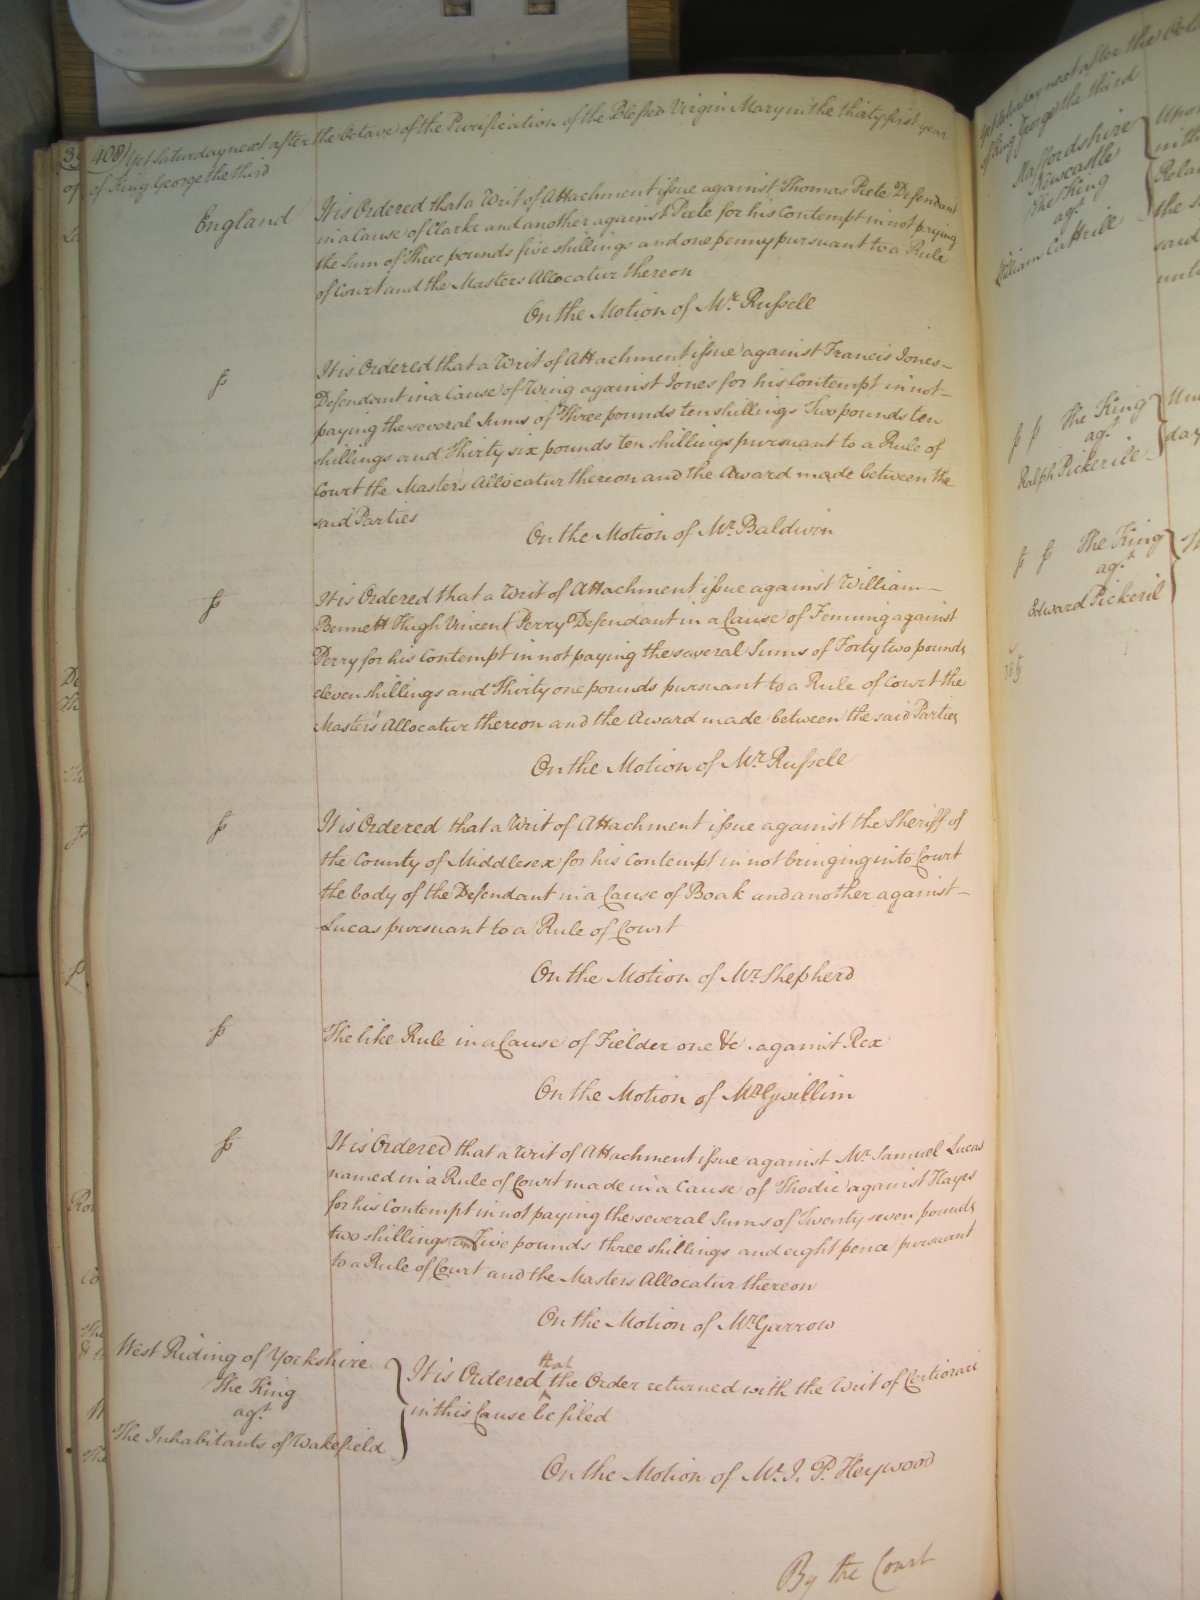 408 Yet Saturday next after the Octave of the Purification of the Blessed Virgin Mary in the thirty first year
of King George the third
England
It is Ordered that a Writ of Attachment issue against Thomas Peele Defendant
in a Cause of Clarke and another against Peele for his Contempt in not paying
the Sum of Three pounds five shillings and one penny pursuant to a Rule
of Court and the Masters Allocatur thereon
On the Motion of Mr. Russell
It is Ordered that a Writ of Attachment issue against Francis Jones
Defendant in a Cause of Wing against Jones for his Contempt in not
paying the several Sums of Three pounds ten shillings Two pounds ten
shillings and Thirty six pounds ten shillings pursuant to a Rule of
Court the Master's Allocatur thereon and the Award made between the
said Parties
On the Motion of Mr. Baldwin
It is Ordered that a Writ of Attachment issue against William
Bennett Hugh Vincent Perry Defendant in a Cause of Fenning against
Perry for his Contempt in not paying the several Sums of Forty two pounds
eleven shillings and Thirty one pounds pursuant to a Rule of Court the
Master's Allocatur thereon and the Award made between the said Parties
On the Motion of Mr. Russell
It is Ordered that a Writ of Attachment issue against the Sheriff of
the County of Middlesex for his Contempt in not bringing into Court
the body of the Defendant in a Cause of Boak and another against
Lucas pursuant to a Rule of Court
On the Motion of Mr. Shepherd
The like Rule in a Cause of Fielder one &c. against Rex
On the Motion of Mr. Gwillim
It is Ordered that a Writ of Attachment issue against Mr. Samuel Lucas
named in a Rule of Court made in a Cause of Thodie against Hayes
for his Contempt in not paying the several Sums of Twenty seven pounds
two shillings and Five pounds three shillings and eight pence pursuant
to a Rule of Court and the Masters Allocatur thereon
On the Motion of Mr. Garrow
West Riding of Yorkshire
The King
agt.
The Inhabitants of Wakefield
It is Ordered that the Order returned with the Writ of Certiorari
in this Cause be filed
On the Motion of Mr. J. P. Heywood
By the Court
Yet Saturday next after the
of King George the third
Staffordshire
Newcastle
The King
agt.
William Cattrill
the
said
The King
agt.
Ralph Pickerill
day
The King
agt.
Edward Pickeril